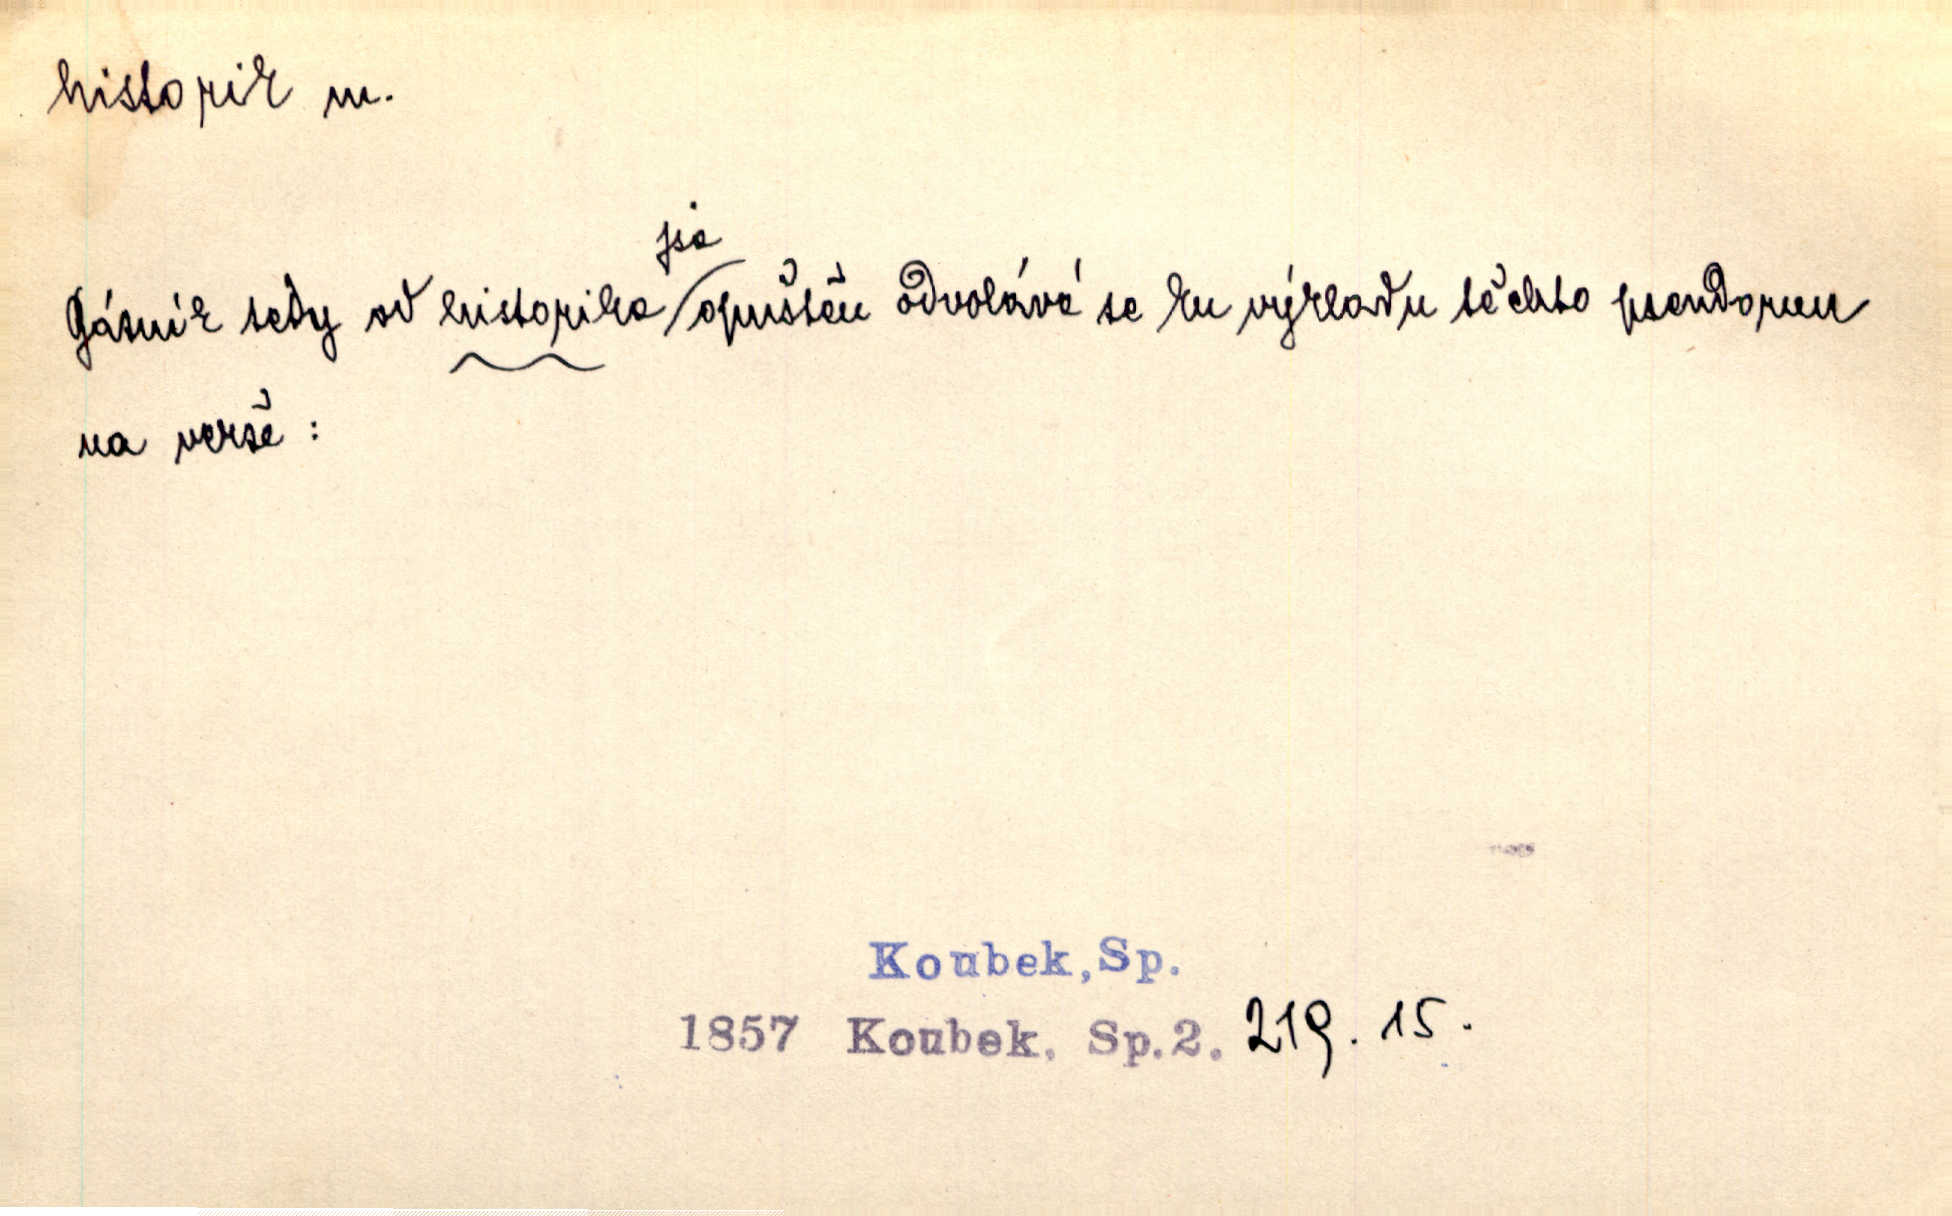 historik m.
jsa
Básník tedy od historika opuštěn odvolává se ku výkladu těchto pseudorun
na verše:
Koubek, Sp.
1857 Koubek, Sp.2. 219. 15.